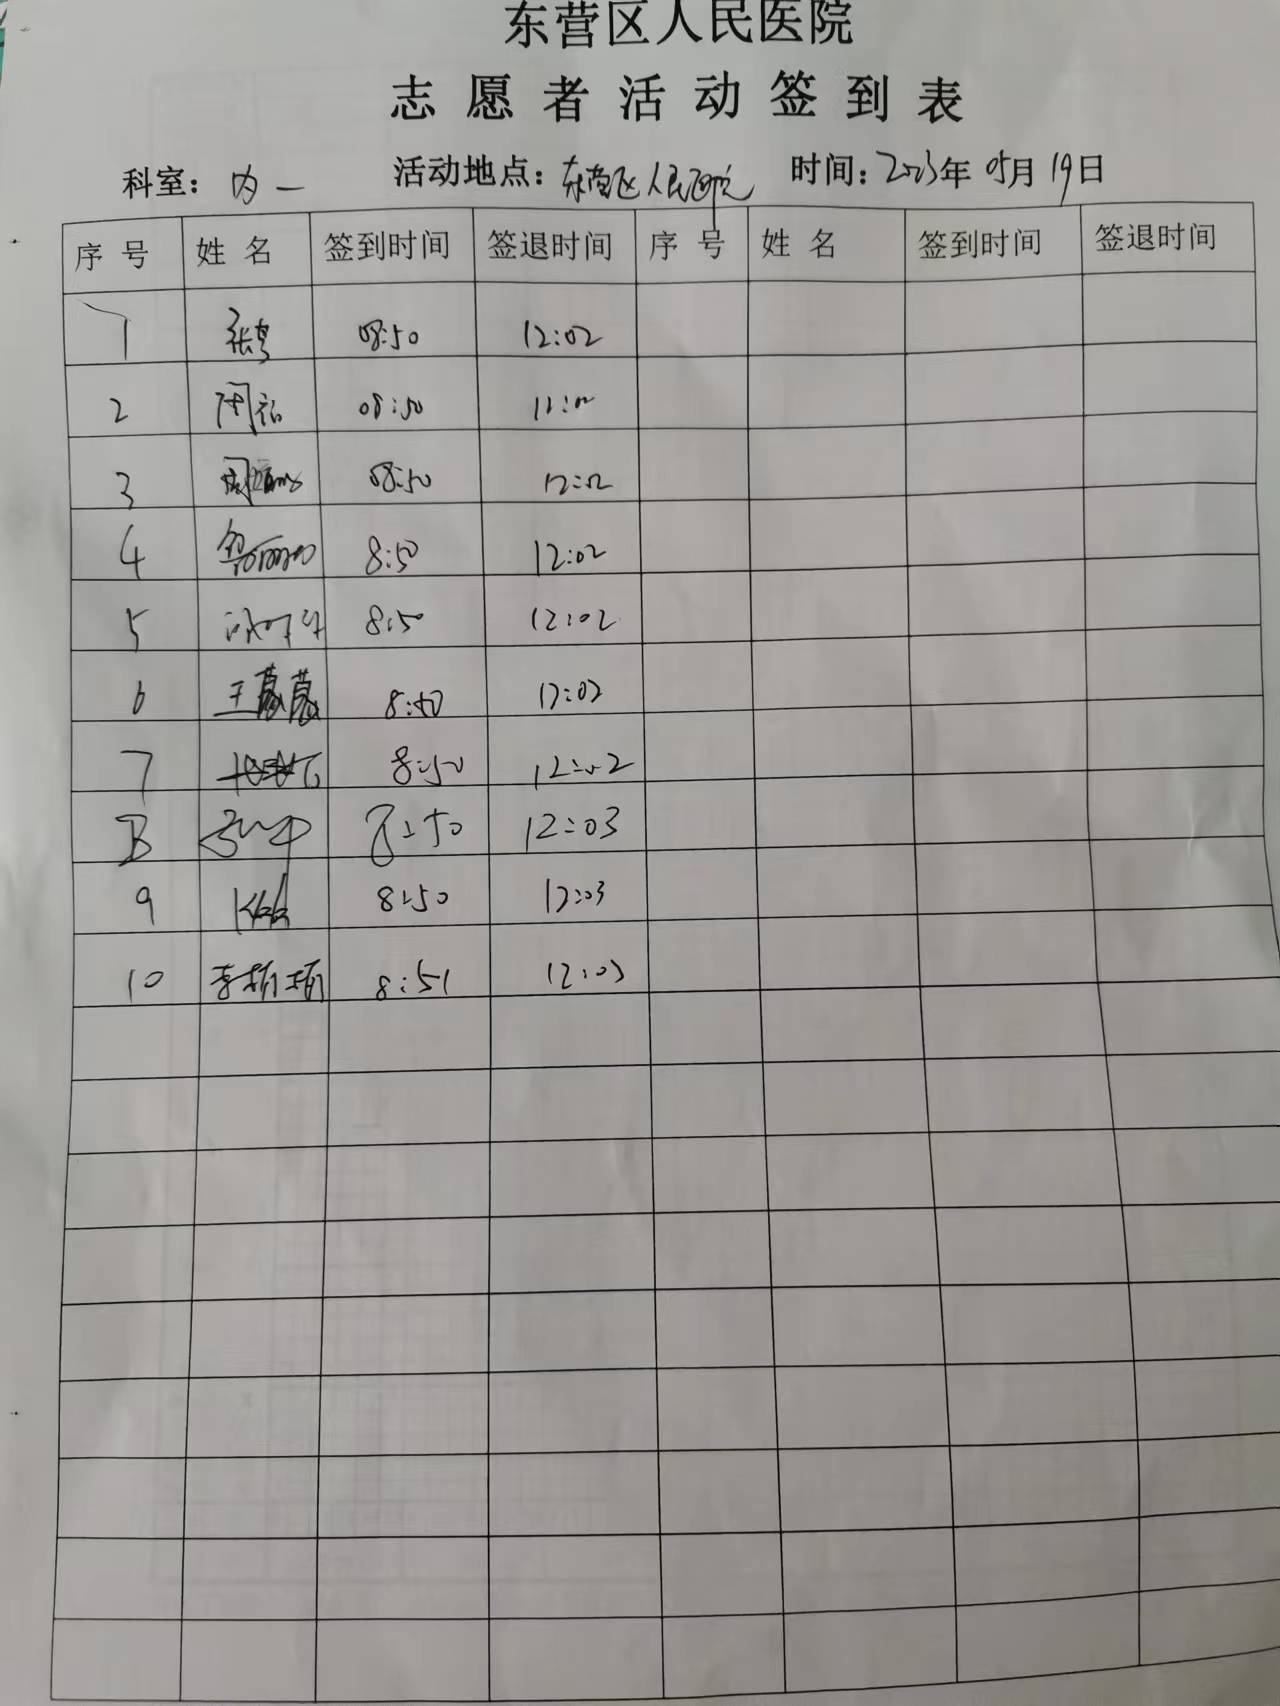 东营区人民医院
志愿者活动签到表
科室：内一 活动地点：东营区人民医院 时间：2023年05月19日
序号 姓名 签到时间 签退时间 序号 姓名 签到时间 签退时间
1 08:50 12:02
2 08:50 12:02
3 08:50 12:02
4 8:50 12:02
5 8:50 12:02
6 王 8:50 12:02
7 8:50 12:02
8 8:50 12:03
9 8:50 12:03
10 李楠楠 8:51 12:03